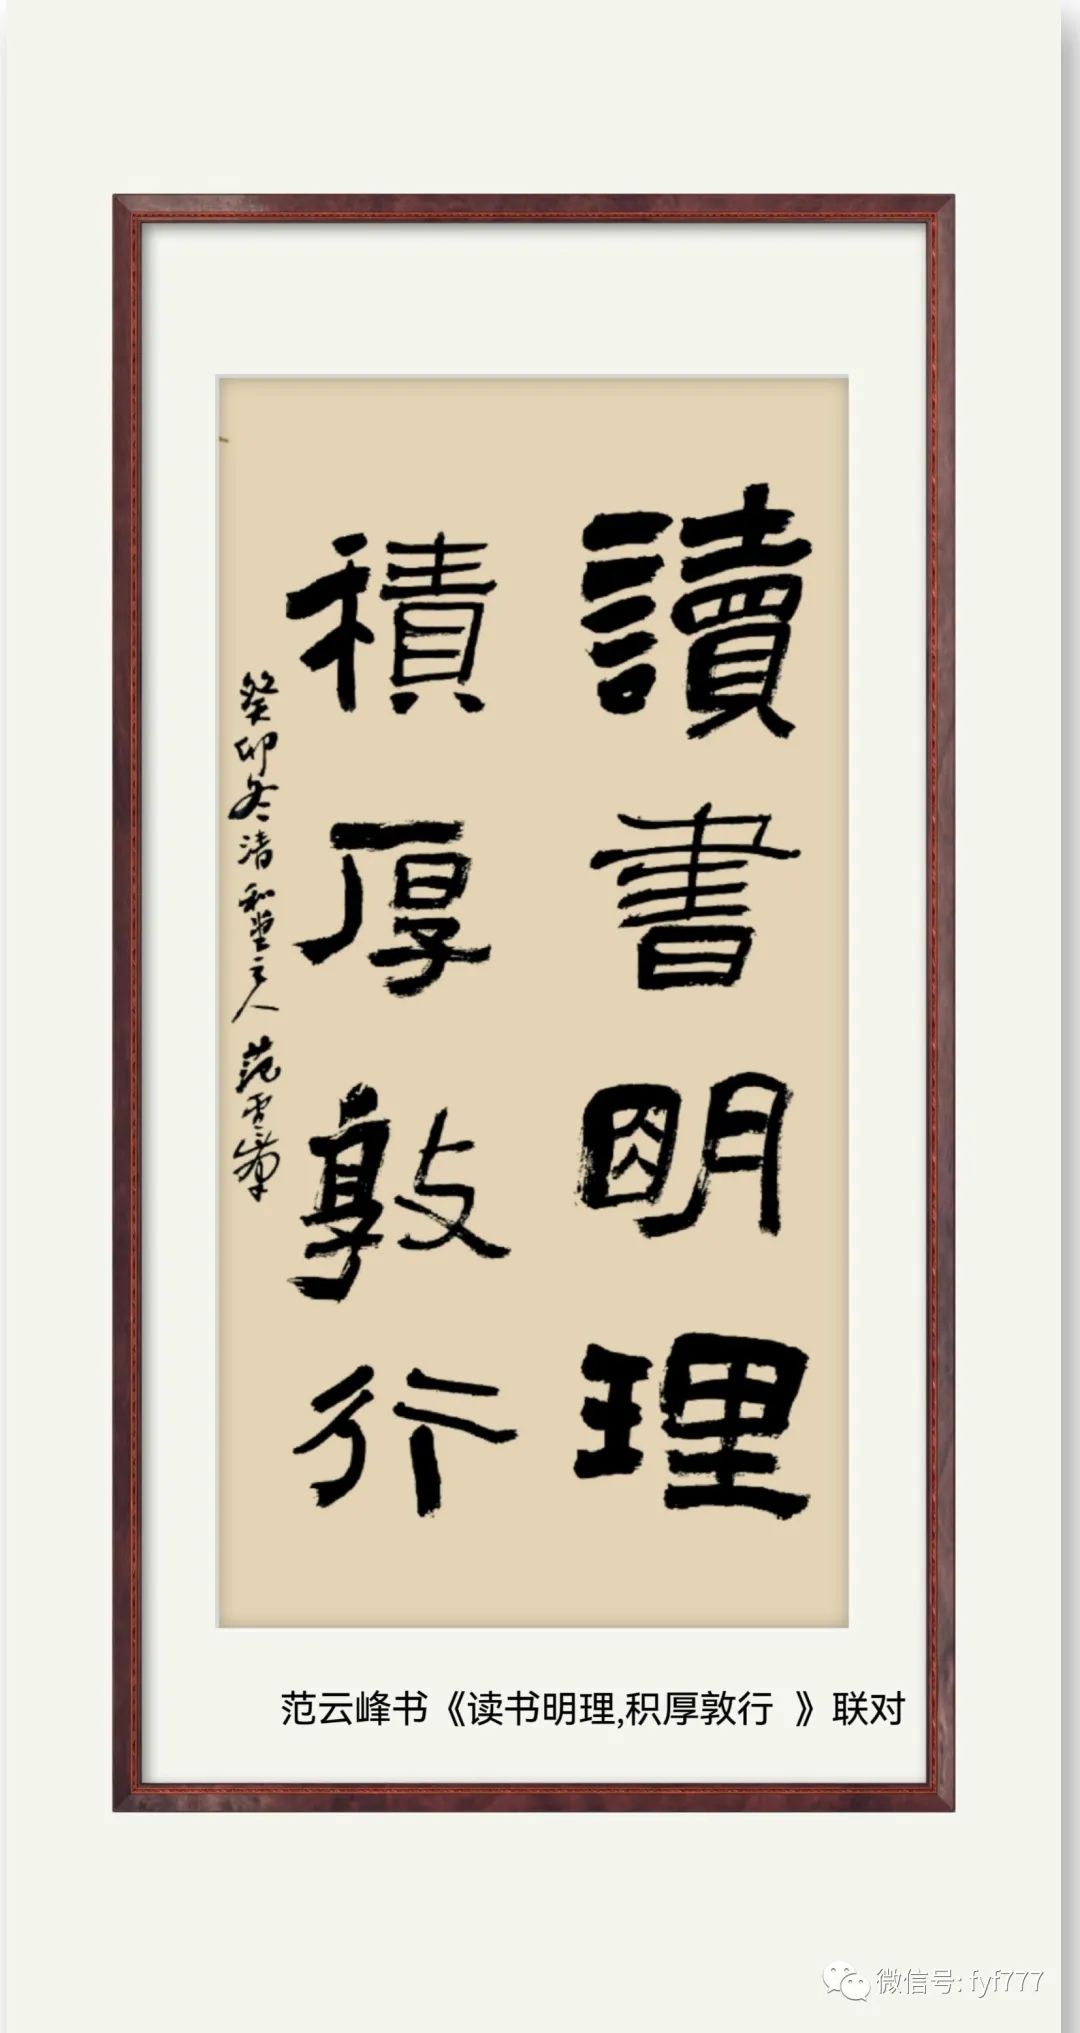 讀書明理
積厚敦行
癸卯冬清和堂主人范雲峰
范云峰书《读书明理,积厚敦行 》联对
微信号: fyf777